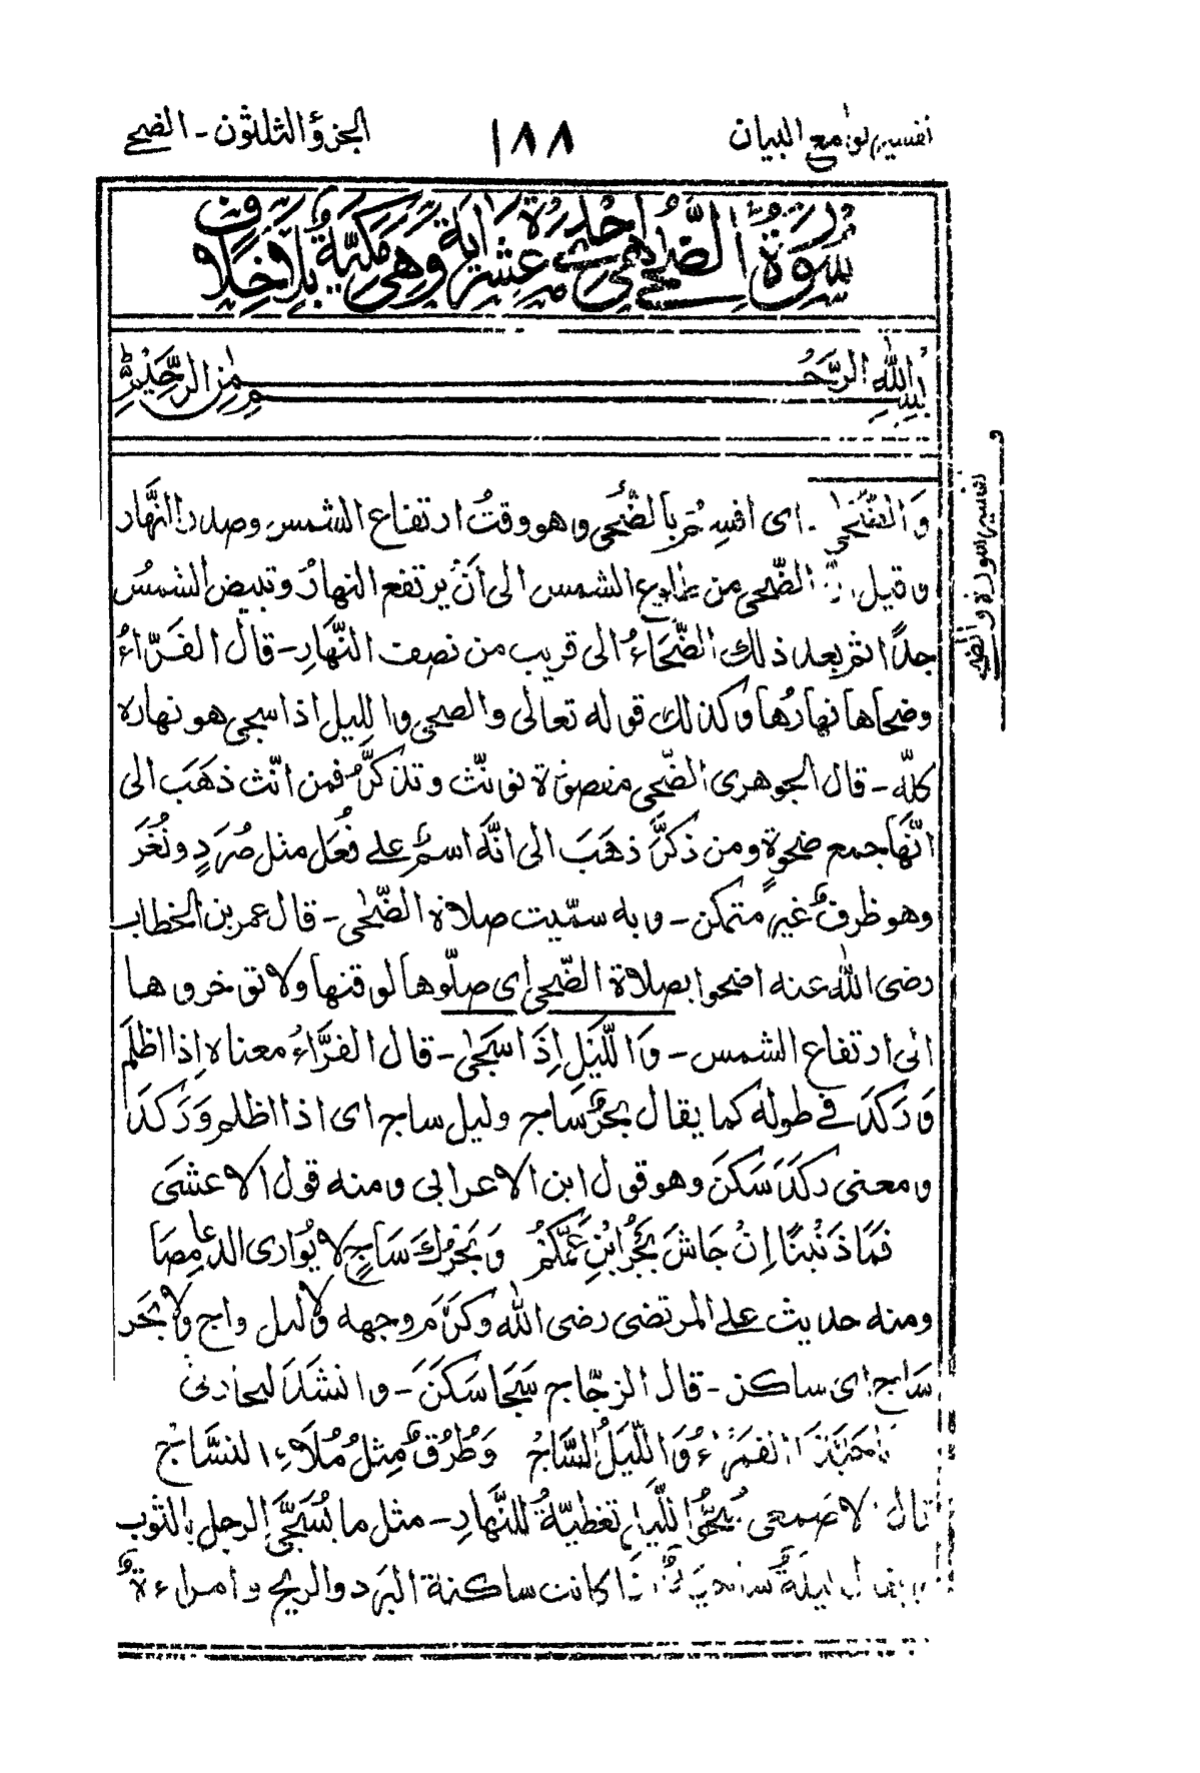 تفسير لوامع البيان
١٨٨
الجزؤ الثلثون - الضحى
سُوْرَةُ الضُّحٰى هِىَ اِحْدٰى عَشْرَةَ اٰيَةً وَهِىَ مَكِّيَّةٌ بِلَا خِلَافٍ
بِسْمِ اللهِ الرَّحْمٰنِ الرَّحِيْمِ
تفسير سورة والضحى
وَالضُّحٰى - اى اقسِمُ بالضُّحى وهو وقتُ ارتفاع الشمس وصدر النهَّار
وقيل الضُّحى من طلوع الشمس الى اَنْ يرتفع النهارُ وتبيض الشمسُ
جدًا ثم بعد ذلك الضَّحَاءُ الى قريب من نصف النَّهَارِ - قال الفَرَّاءُ
وضحاها نهارُها وكذلك قوله تعالى والضحى والليل اذا سجى هو نهاره
كلّه - قال الجوهرى الضّحى مقصورة تؤنّث وتذكَّر فمن انّث ذهَبَ الى
انَّها جمع ضحوةٍ ومن ذكَّرَ ذهَبَ الى انَّه اسمٌ على فُعَل مثل صُرَدٍ ونُغَرَ
وهو ظرفٌ غير متمكن - وبه سمّيت صلاة الضّحٰى - قال عمر بن الخطاب
رضى الله عنه اضحوا بصلاة الضّحى اى صلّوها لوقتها ولا تؤخروها
الى ارتفاع الشمس - وَاللَّيْلِ اِذَا سَجٰى - قال الفَرَّاءُ معناه اِذا اظلَمَ
وَرَكَدَ فى طوله كما يقال بحرٌ سَاجٍ وليل ساج اى اذا اظلم وَرَكَدَ
ومعنى رَكَدَ سَكَنَ وهو قول ابن الاعرابى ومنه قول الاعشَى
فَمَا ذَنْبُنَا اِنْ جَاشَ بَحْرُ ابْنِ عَمِّكُمْ وَبَحْرُكَ سَاجٍ لا يُوَارِى الدعامِصَا
ومنه حديث على المرتضى رضى الله وكرّم وجهه ولا ليل داج ولا بَحَر
سَاج اى ساكن - قال الزجّاج سَجَا سَكَنَ - وانشَدَ لحادىْ
يا حَبَّذَا القَمْرَاءُ وَاللَّيْلُ السَّاجْ وَطُرُقٌ مِثْلُ مُلَاءِ النسَّاجْ
قال الاصمعى سُجُوُّ اللَّيلِ تغطيّةٌ للنَّهارِ - مثل ما يُسَجَّى الرجل بالثوب
ليلةٌ كانت ساكنة البَرَد والريح وامراءةٌ